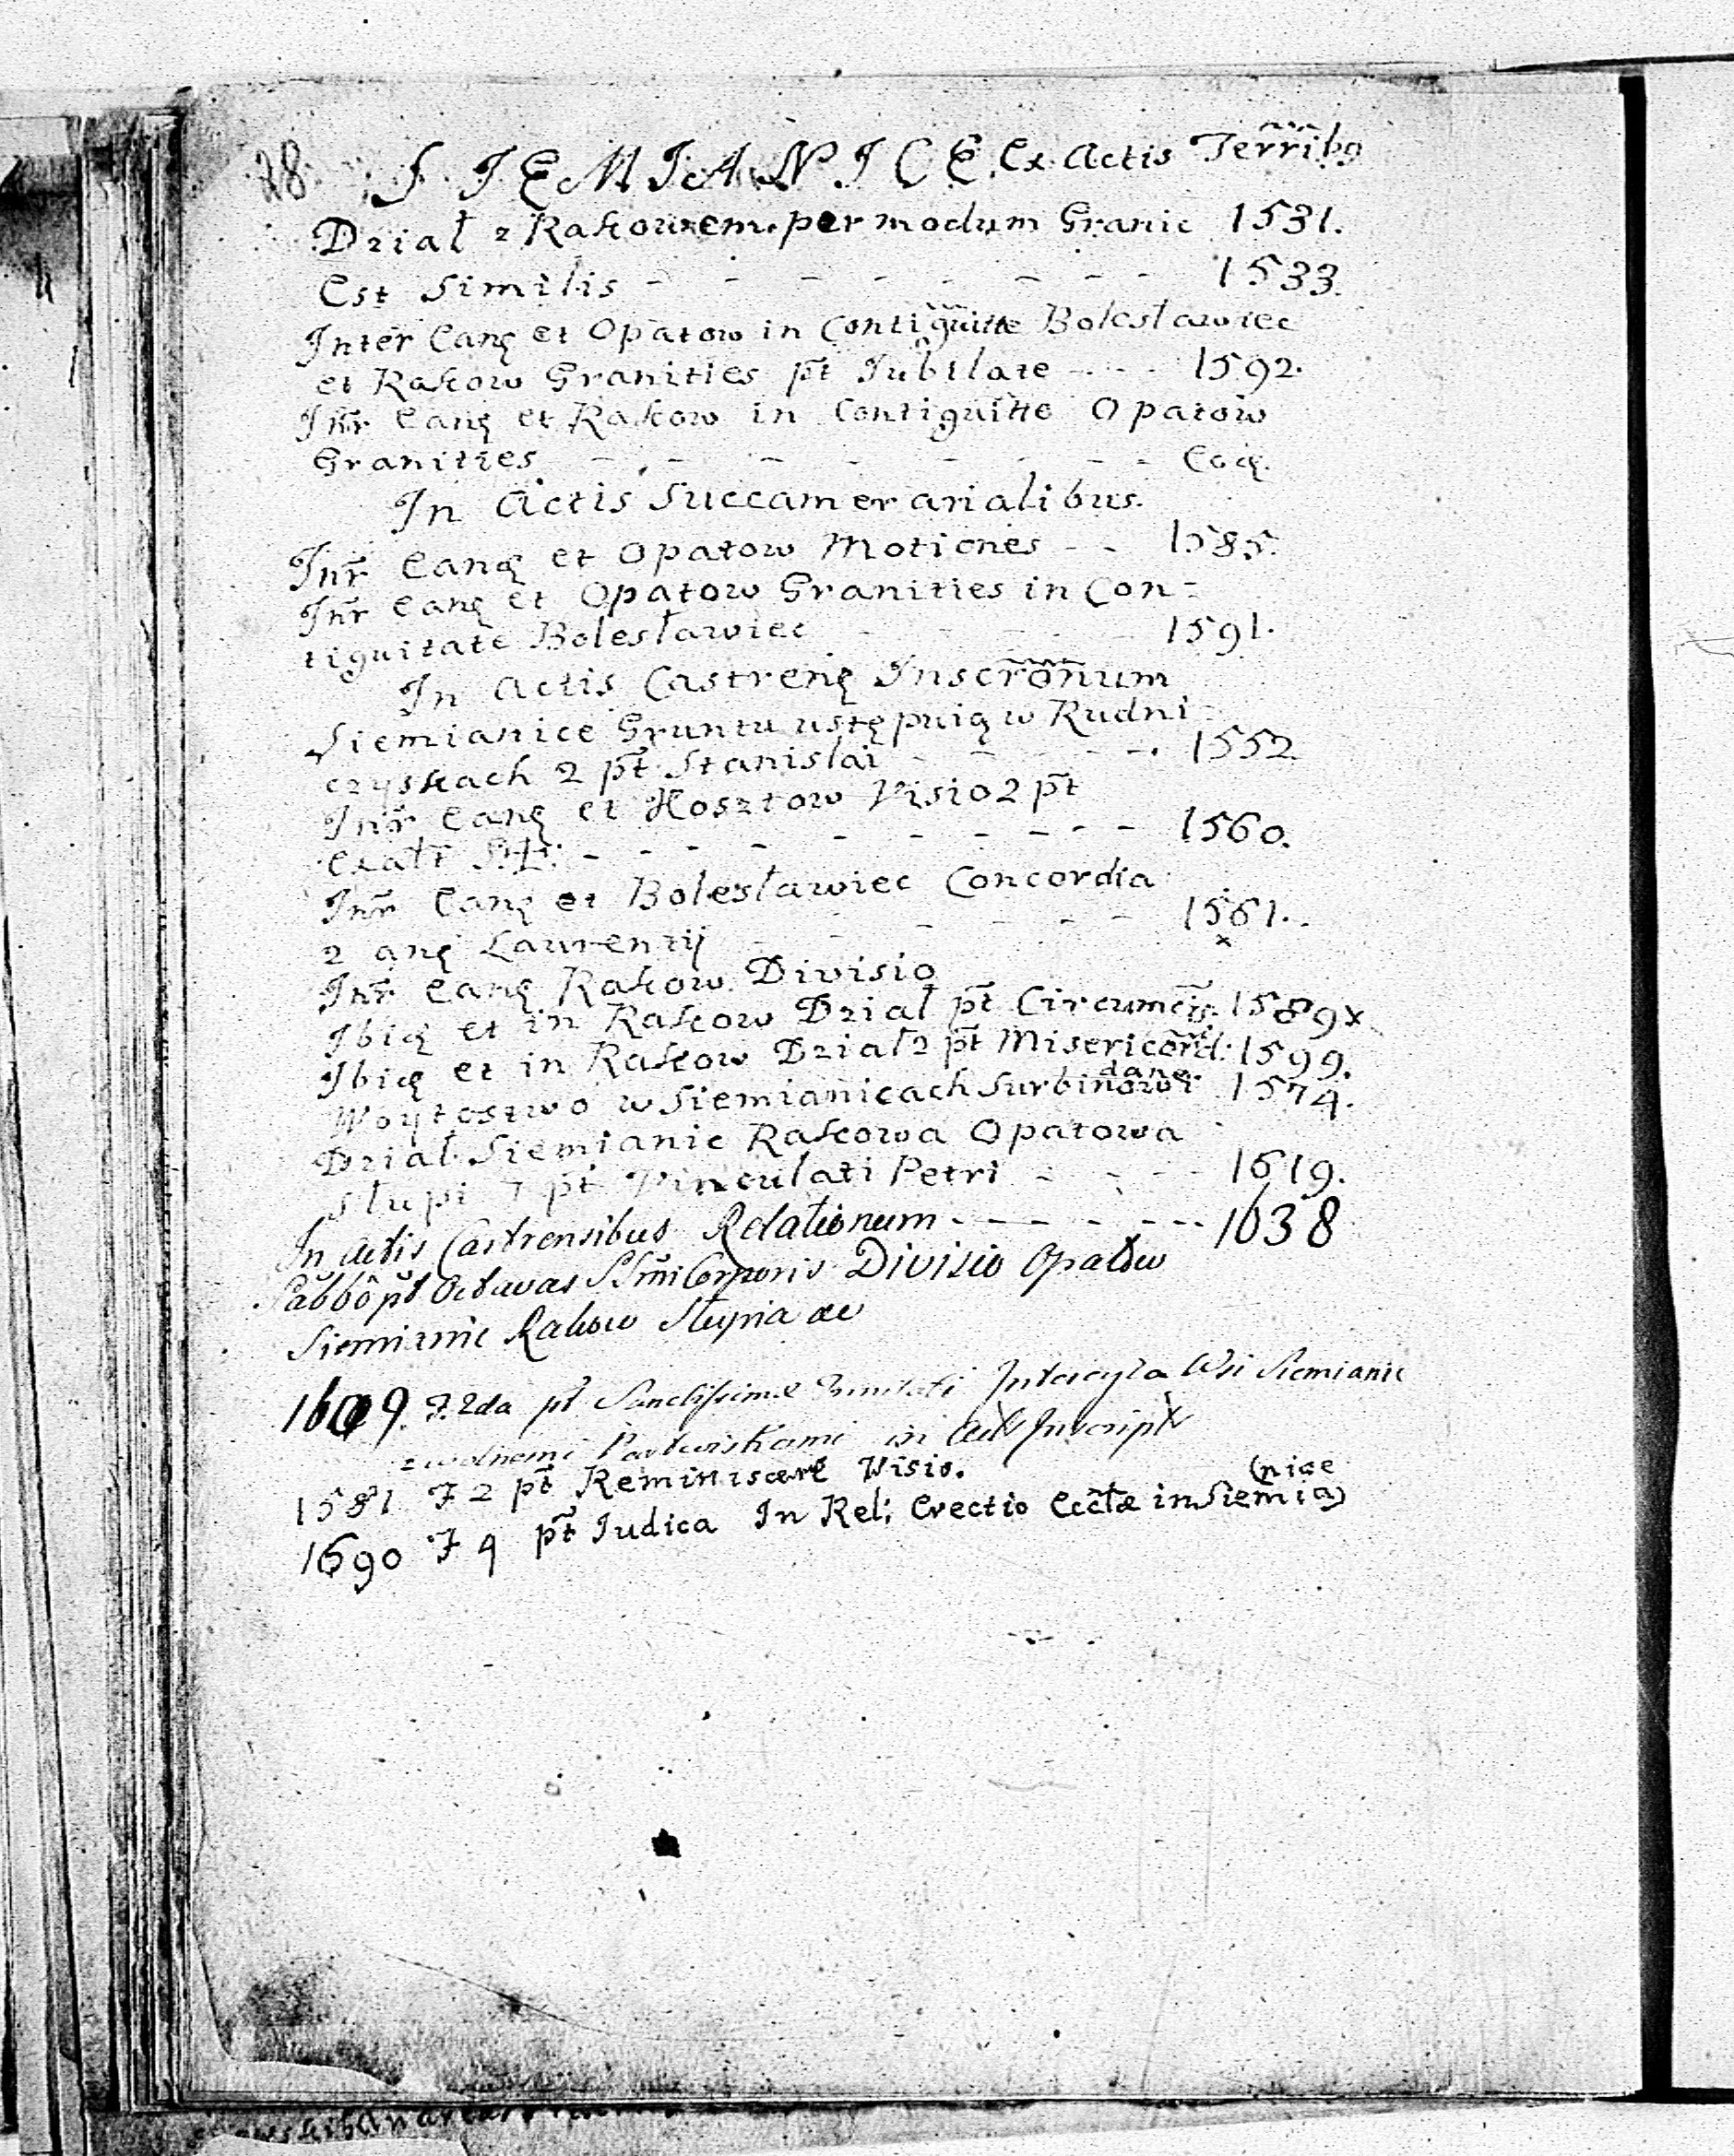 28.
SIEMIANICE. Ex Actis Terrib9
Dział z Rakowem. per modum Granic 1531.
Est Similis - - - - - - - 1533.
Inter Eanę et Opatow in Contiguitte Bolesławiec
et Rakow Granities pt Jubilate - - - 1592.
Inr Eanę et Rakow in Contiguitte Opatow
Granities - - - - - - - Eoq.
In Actis Succamerarialibus.
Inr Eanę et Opatow Motiones - - 1585.
Inr Eanę et Opatow Granities in Con=
tiguitate Bolesławiec - - - - 1591.
In Actis Castrenę Inscronum
Siemianice Gruntu ustępuią w Rudni=
czyskach 2 pt Stanislai - - - - - 1552.
Inr Eanę et Kosztow Visio 2 pt
Exalt S: ┼: - - - - - - - - 1560.
Inr Eanę et Bolesławiec Concordia
2 anę Laurentij - - - - - 1561.
Inr Eanę Rakow Divisio
Ibię et in Rakow Dział pt Circumcis: 1589x
Ibię et in Rakow Dział 2 pt Misericord: 1599.
Woytostwo w Siemianicach Surbinowi dane. 1574.
Dział Siemianic Rakowa Opatowa
Słupi 7 pt Vinculati Petri - - - - 1619.
In Actis Castrensibus Relationum - - - - - - 1638
Sabbo pt Octavas SSmi Corporis Divisio Opatow
Siemianic Rakow Słupia ac
1609. F. 2da pt Sanctissimæ Trinitati Intercyza Wsi Siemianic
in Act Inscript
1581 F 2 pt Reminiscere Visio.
1690 F 4 pt Iudica In Rel: Erectio Ecclæ in Siemia) (nice